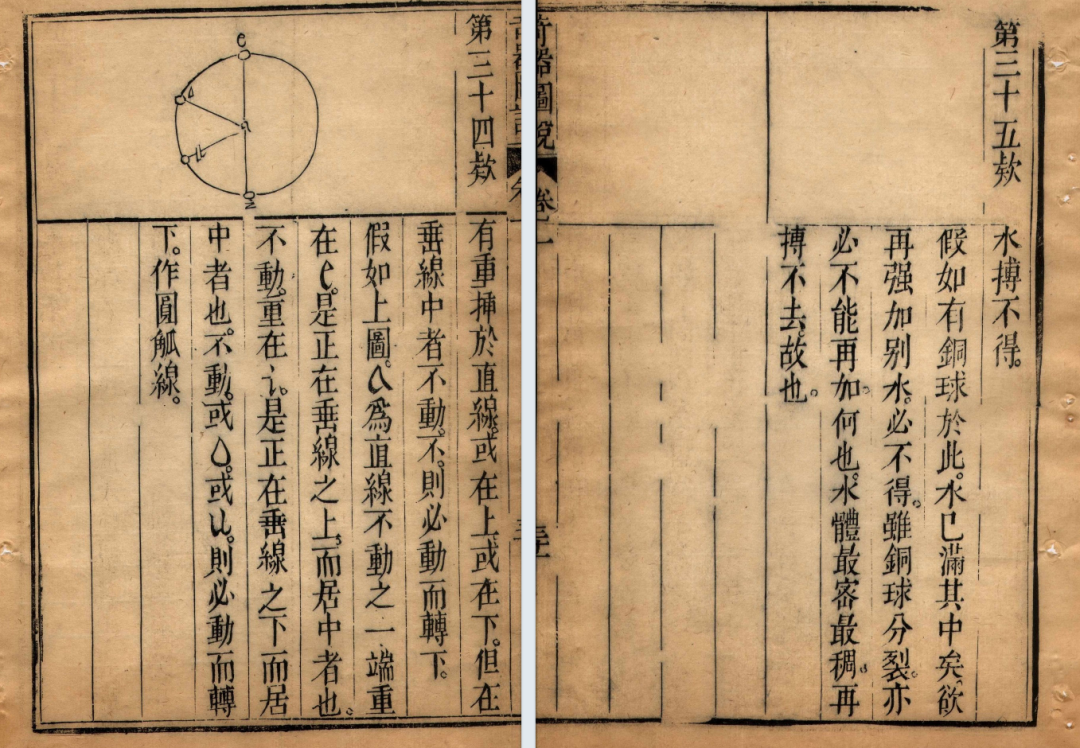 第三十四欵
e
有重揷於直線。或在上。或在下。但在
垂線中者不動。不。則必動而轉下。
假如上圖。a爲直線不動之一端重
在e。是正在垂線之上。而居中者也。
不動。重在i。是正在垂線之下而居
中者也。不動。或o。或u。則必動而轉
下。作圓觚線。
奇器圖說
卷一
第三十五欵
水搏不得。
假如有銅球於此。水已滿其中矣。欲
再强加别水。必不得。雖銅球分裂。亦
必不能再加。何也。水體最密最稠。再
搏不去。故也。